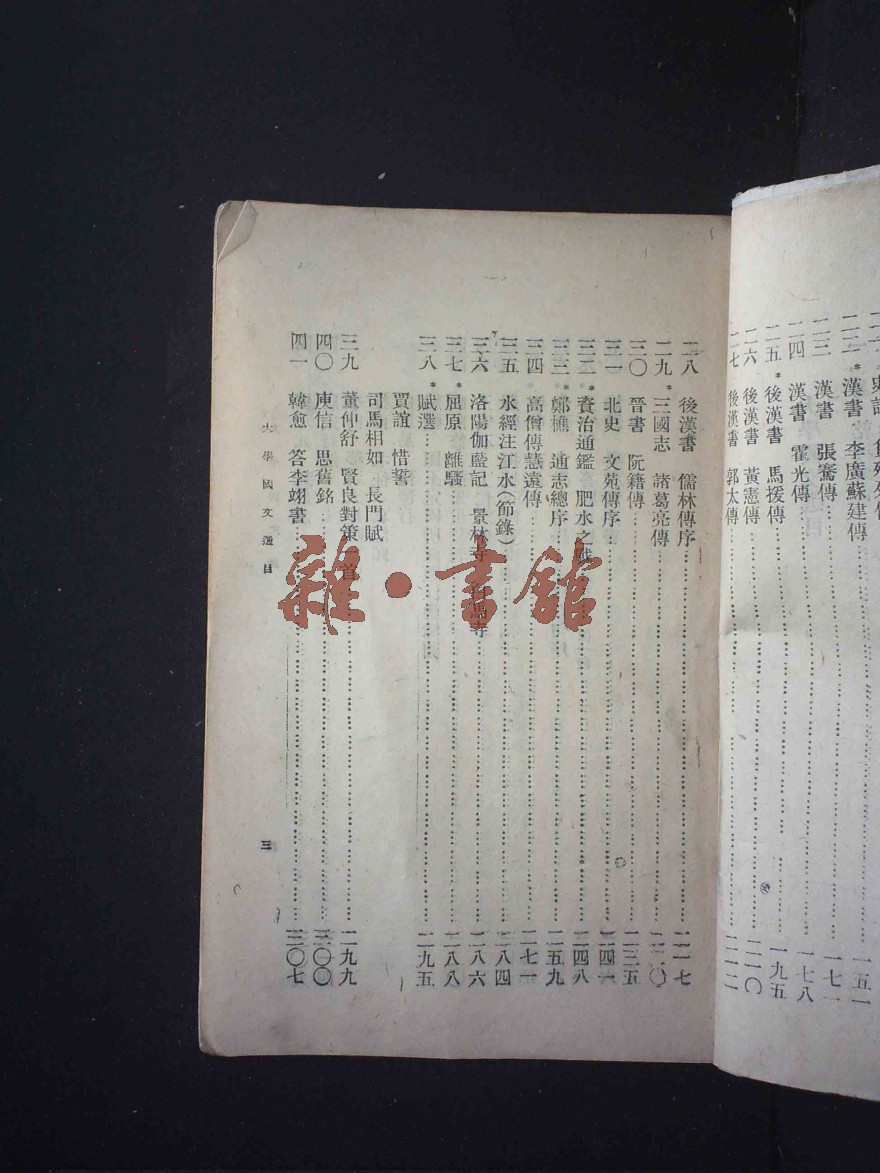 漢書 李廣蘇建傳
一五一
二三 漢書 張騫傳
一七一
二四 漢書 霍光傳
一七八
二五 * 後漢書 馬援傳
一九五
二六 後漢書 黃憲傳
二一〇
二七 後漢書 郭太傳
二一二
二八 後漢書 儒林傳序
二一七
二九 * 三國志 諸葛亮傳
二二〇
三〇 晉書 阮籍傳
二三五
三一 北史 文苑傳序
二四一
三二 * 資治通鑑 肥水之戰
二四八
三三 * 鄭樵 通志總序
二五九
三四 高僧傳慧遠傳
二七一
三五 水經注江水(節錄)
二八四
三六 洛陽伽藍記 景林寺 白馬寺
二八六
三七 * 屈原 離騷
二八八
三八 * 賦選
二九五
賈誼 惜誓
司馬相如 長門賦
三九 董仲舒 賢良對策一首
二九九
四〇 庾信 思舊銘
三〇〇
四一 韓愈 答李翊書
三〇七
大學國文選目
三
雜·書館